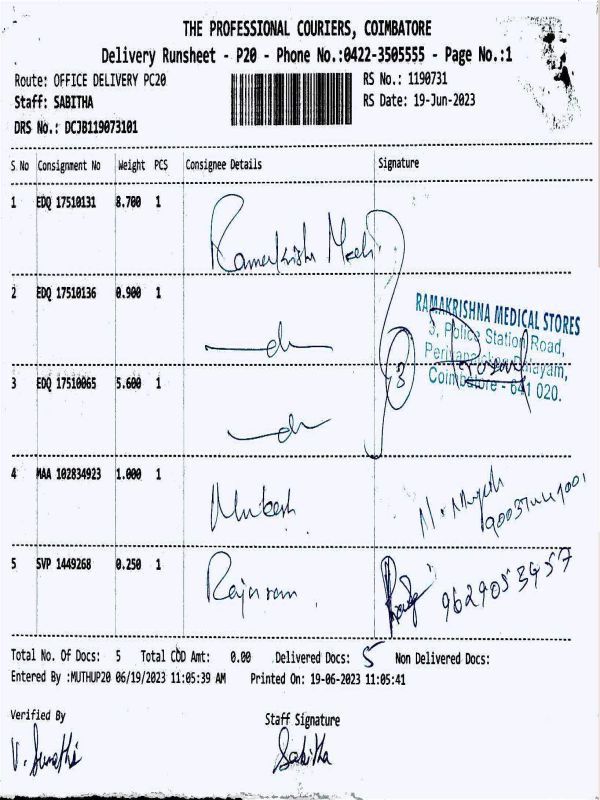 THE PROFESSIONAL COURIERS, COIMBATORE
Delivery Runsheet - P20 - Phone No.:0422-3505555 - Page No.:1
Route: OFFICE DELIVERY PC20 RS No.: 1190731
Staff: SABITHA RS Date: 19-Jun-2023
DRS No.: DCJB119073101
S No Consignment No Weight PCS Consignee Details Signature
1 EDQ 17510131 8.700 1
Ramakrishna Medi
2 EDQ 17510136 0.900 1
RAMAKRISHNA MEDICAL STORES
3, Police Station Road,
Coimbatore - 641 020.
do
3
3 EDQ 17510065 5.600 1
do
4 MAA 102834923 1.000 1
Mukesh
5 SVP 1449268 0.250 1
Rajaram 9629053957
Total No. Of Docs: 5 Total COD Amt: 0.00 Delivered Docs: 5 Non Delivered Docs:
Entered By :MUTHUP20 06/19/2023 11:05:39 AM Printed On: 19-06-2023 11:05:41
Verified By Staff Signature
Sabitha